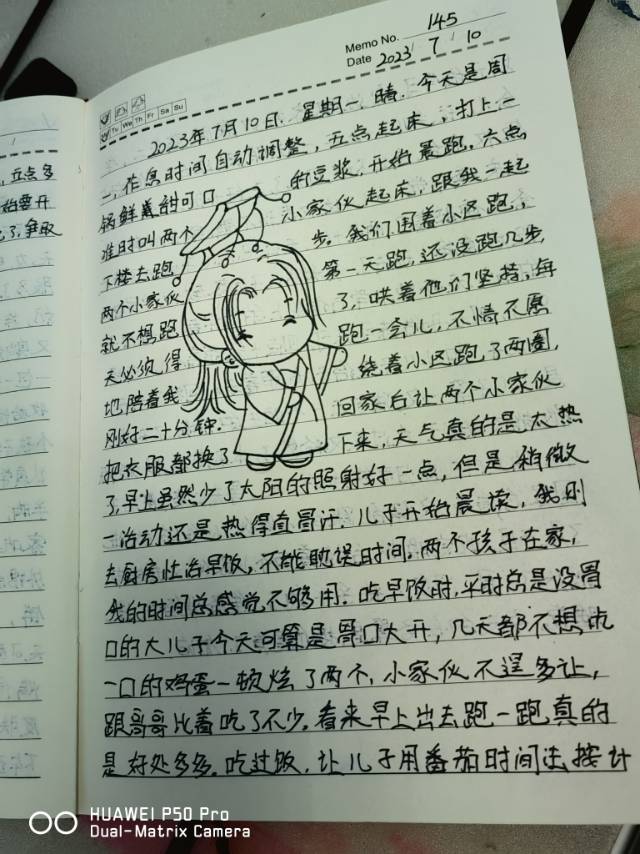 Memo No. 145
Date 2023 / 7 / 10
Tu We Th Fr Sa Su
2023年7月10日. 星期一. 晴. 今天是周
一, 作息时间自动调整, 五点起床, 打上一
锅鲜美甜可口 的豆浆. 开始晨跑. 六点
准时叫两个 小家伙起床, 跟我一起
下楼去跑 步. 我们围着小区跑,
两个小家伙 第一天跑, 还没跑几步,
就不想跑 了, 哄着他们坚持, 每
天必须得 跑一会儿, 不情不愿
地陪着我 绕着小区跑了两圈,
刚好二十分钟. 回家后让两个小家伙
把衣服都换了 下来, 天气真的是太热
了, 早上虽然少了太阳的照射好一点, 但是稍微
一活动还是热得直冒汗. 儿子开始晨读, 我则
去厨房忙活早饭, 不能耽误时间, 两个孩子在家,
我的时间总感觉不够用. 吃早饭时, 平时总是没胃
口的大儿子今天可算是胃口大开, 几天都不想吃
一口的鸡蛋一顿炫了两个, 小家伙不逞多让,
跟哥哥比着吃了不少. 看来早上出去跑一跑真的
是好处多多. 吃过饭, 让儿子用番茄时间法按计
五点多
始要开
了, 争取
HUAWEI P50 Pro
Dual-Matrix Camera